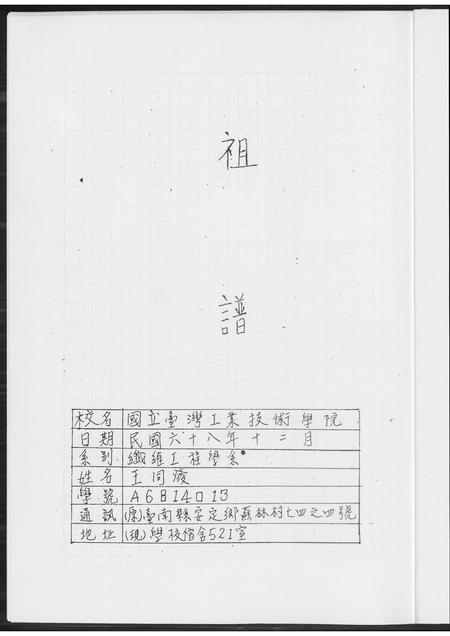 祖
譜
校名 國立臺灣工業技術學院
日期 民國六十八年十二月
系別 纖維工程學系
姓名 王同發
學號 A6814013
通訊 (原)臺南縣安定鄉蘇林村七四之四號
地址 (現)學校宿舍521室